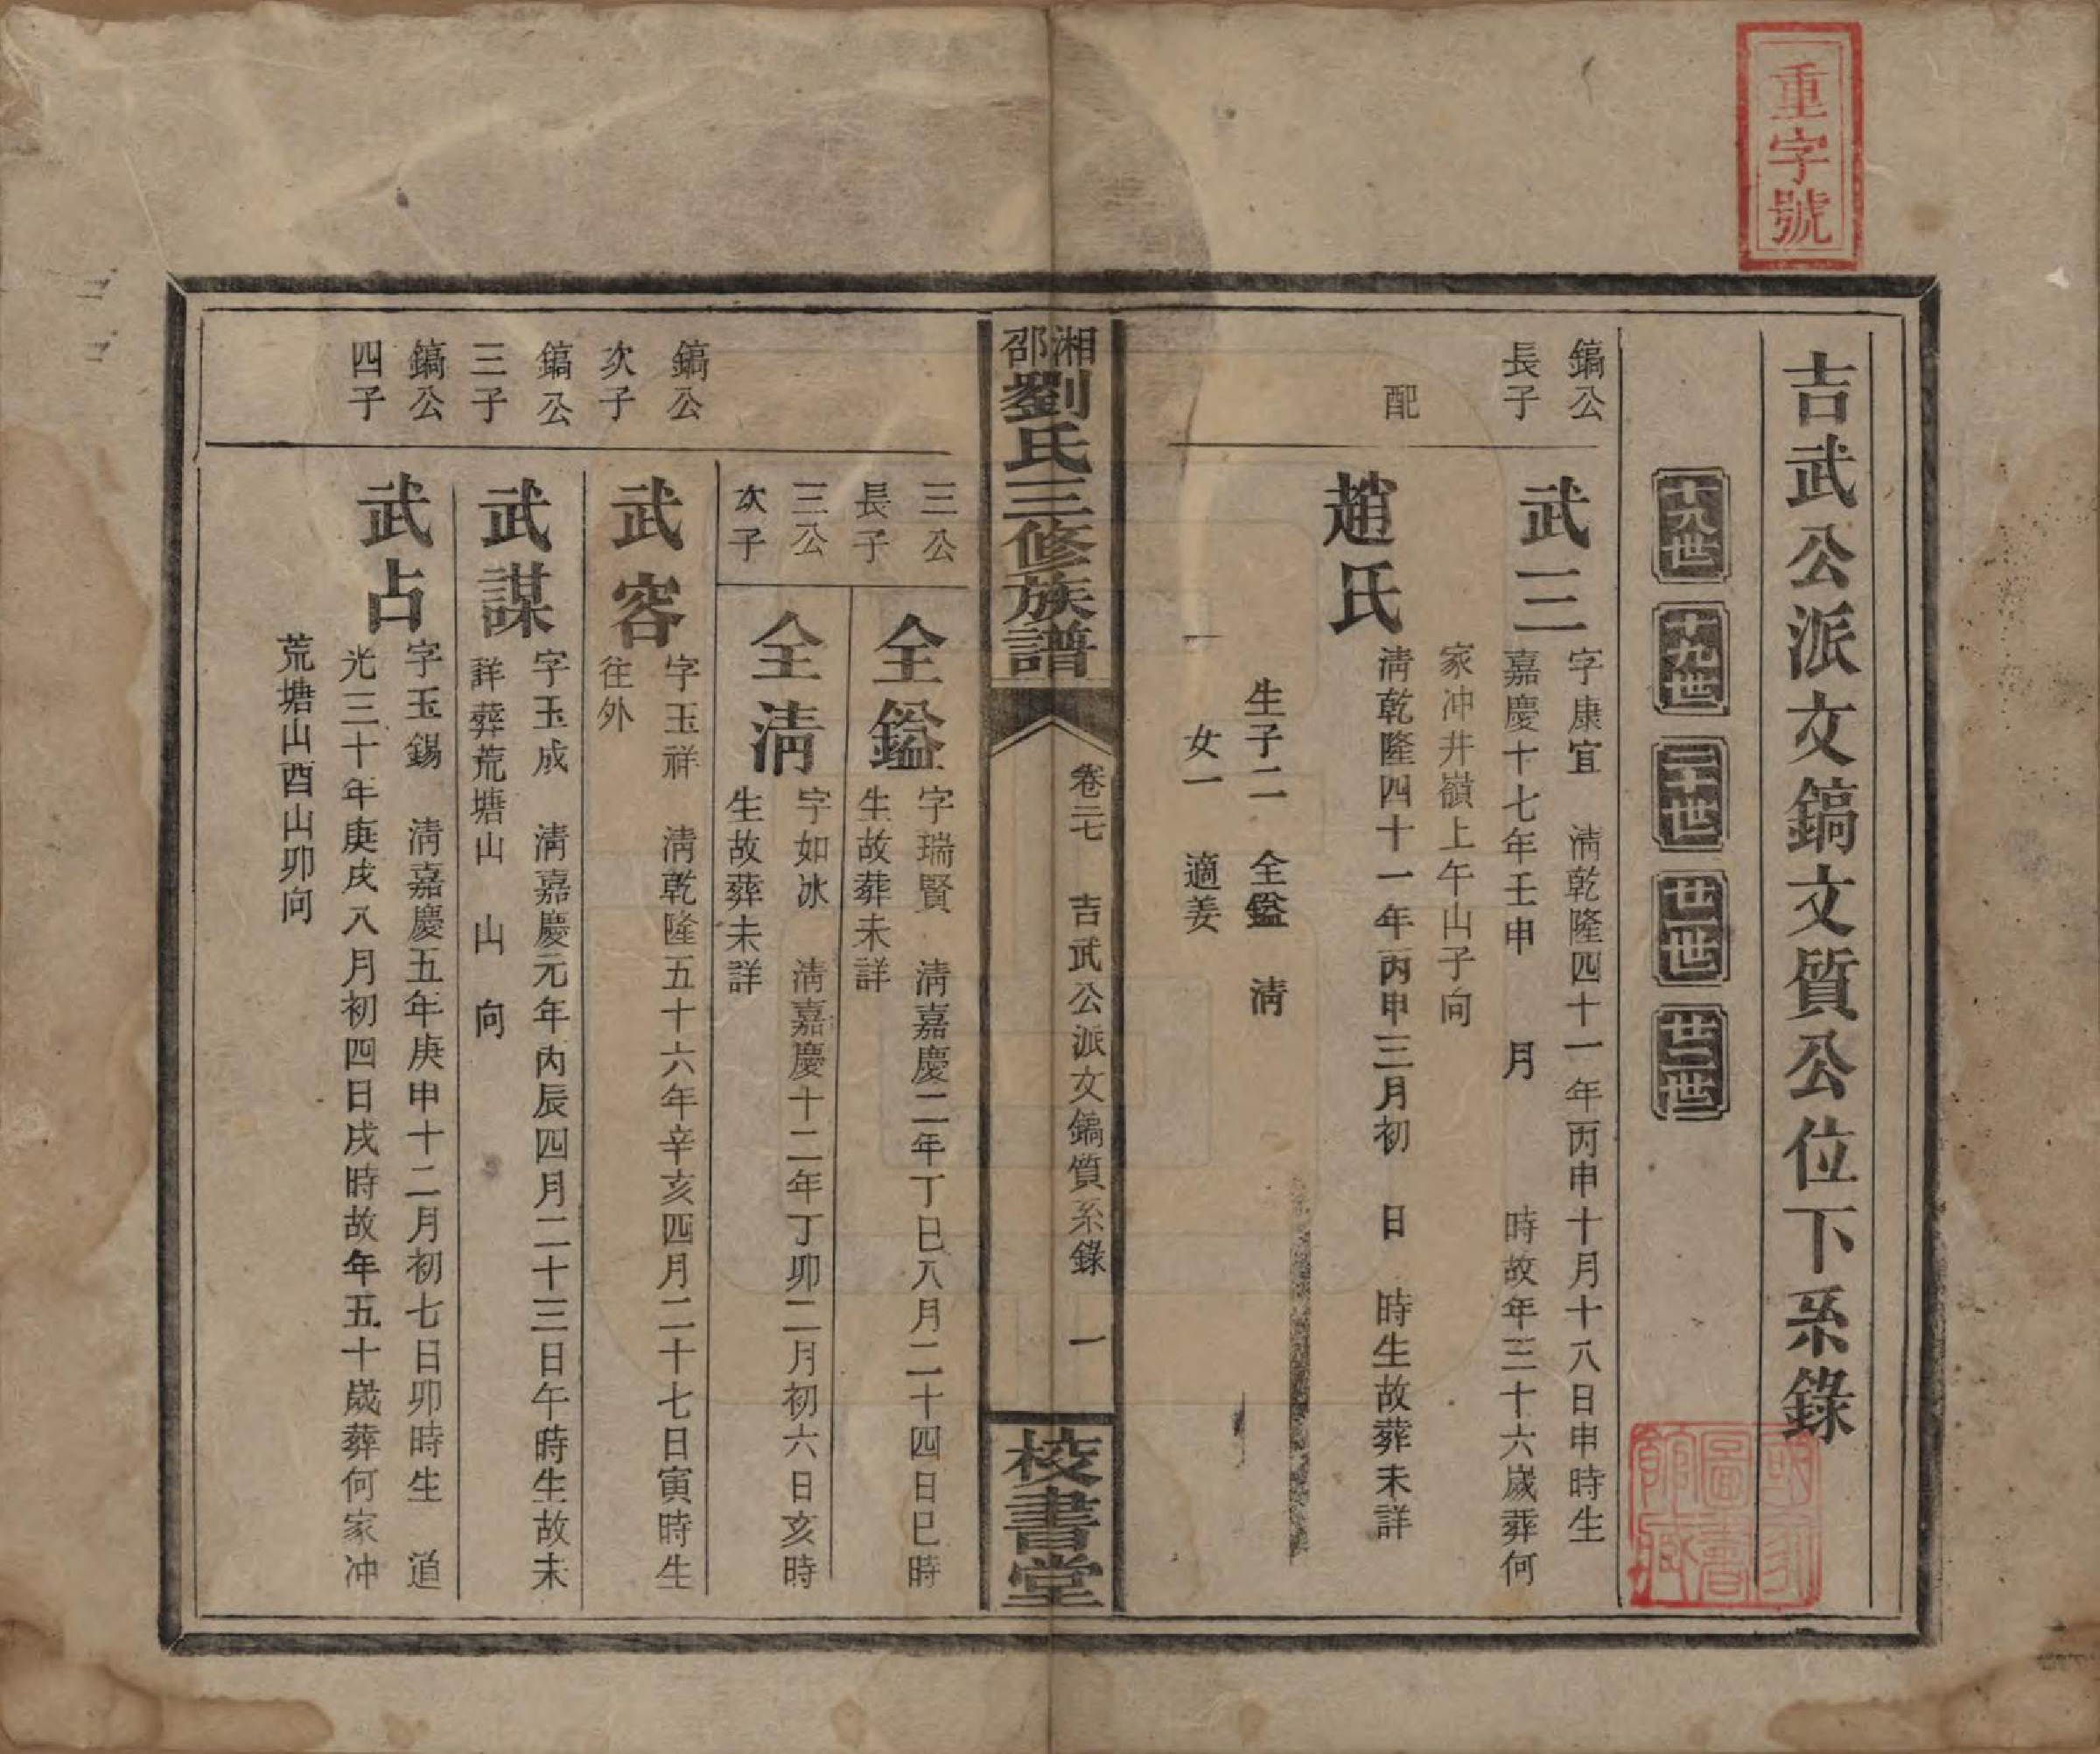 重字號
吉武公派文鎬文質公位下系錄
十八世
十九世
二十世
廿一世
廿二世
鎬公
長子
武三
字康宜 清乾隆四十一年丙申十月十八日申時生
嘉慶十七年壬申 月 時故年三十六歲葬何
家冲井嶺上午山子向
配
趙氏
清乾隆四十一年丙申三月初 日 時生故葬未詳
生子二 全鎰 清
女一 適姜
湘邵劉氏三修族譜
卷二七 吉武公派文鎬質系錄 一
校書堂
三公
長子
全鎰
字瑞賢 清嘉慶二年丁巳八月二十四日巳時
生故葬未詳
三公
次子
全清
字如冰 清嘉慶十二年丁卯二月初六日亥時
生故葬未詳
鎬公
次子
武容
字玉祥 清乾隆五十六年辛亥四月二十七日寅時生
往外
鎬公
三子
武謀
字玉成 清嘉慶元年丙辰四月二十三日午時生故未
詳葬荒塘山 山 向
鎬公
四子
武占
字玉錫 清嘉慶五年庚申十二月初七日卯時生 道
光三十年庚戌八月初四日戌時故年五十歲葬何家冲
荒塘山酉山卯向